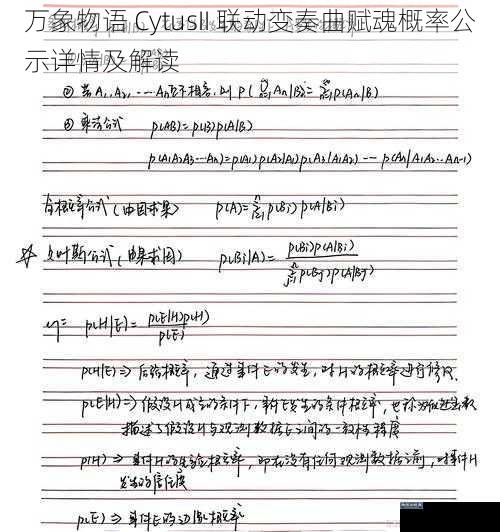 万象物语 CytusII 联动变奏曲赋魂概率公
示详情及解读
② 若A₁,A₂,…An互不相容,则 P(⋃ᵢ₌₁ⁿAn|B)=∑ᵢ₌₁ⁿP(An|B)
③ 乘法公式 P(AB)=P(B)P(A|B)
P(A₁A₂A₃…An)=P(A₁)P(A₂|A₁)P(A₃|A₁A₂)…P(An|A₁A₂…An-1)
全概率公式(由因求果) P(A)=∑ᵢ₌₁ⁿP(Bi)P(A|Bi)
贝叶斯公式(由果求因) P(Bi|A)=P(Bi)P(A|Bi)/∑ⱼ₌₁ⁿP(Bj)P(A|Bj)
P(H|E)=P(E|H)P(H)/P(E)
P(H|E)⇒后验概率,通过事件E的发生,对H的概率进行修改.
P(E|H)⇒假设H成立的条件下,事件E发生的条件概率,也称为似然函数
描述了假设H与观测数据E之间的一致性程度
P(H)⇒事件H的先验概率,即在没有任何观测数据之前,对事件H
发生的信任度
P(E)⇒事件E的边缘概率